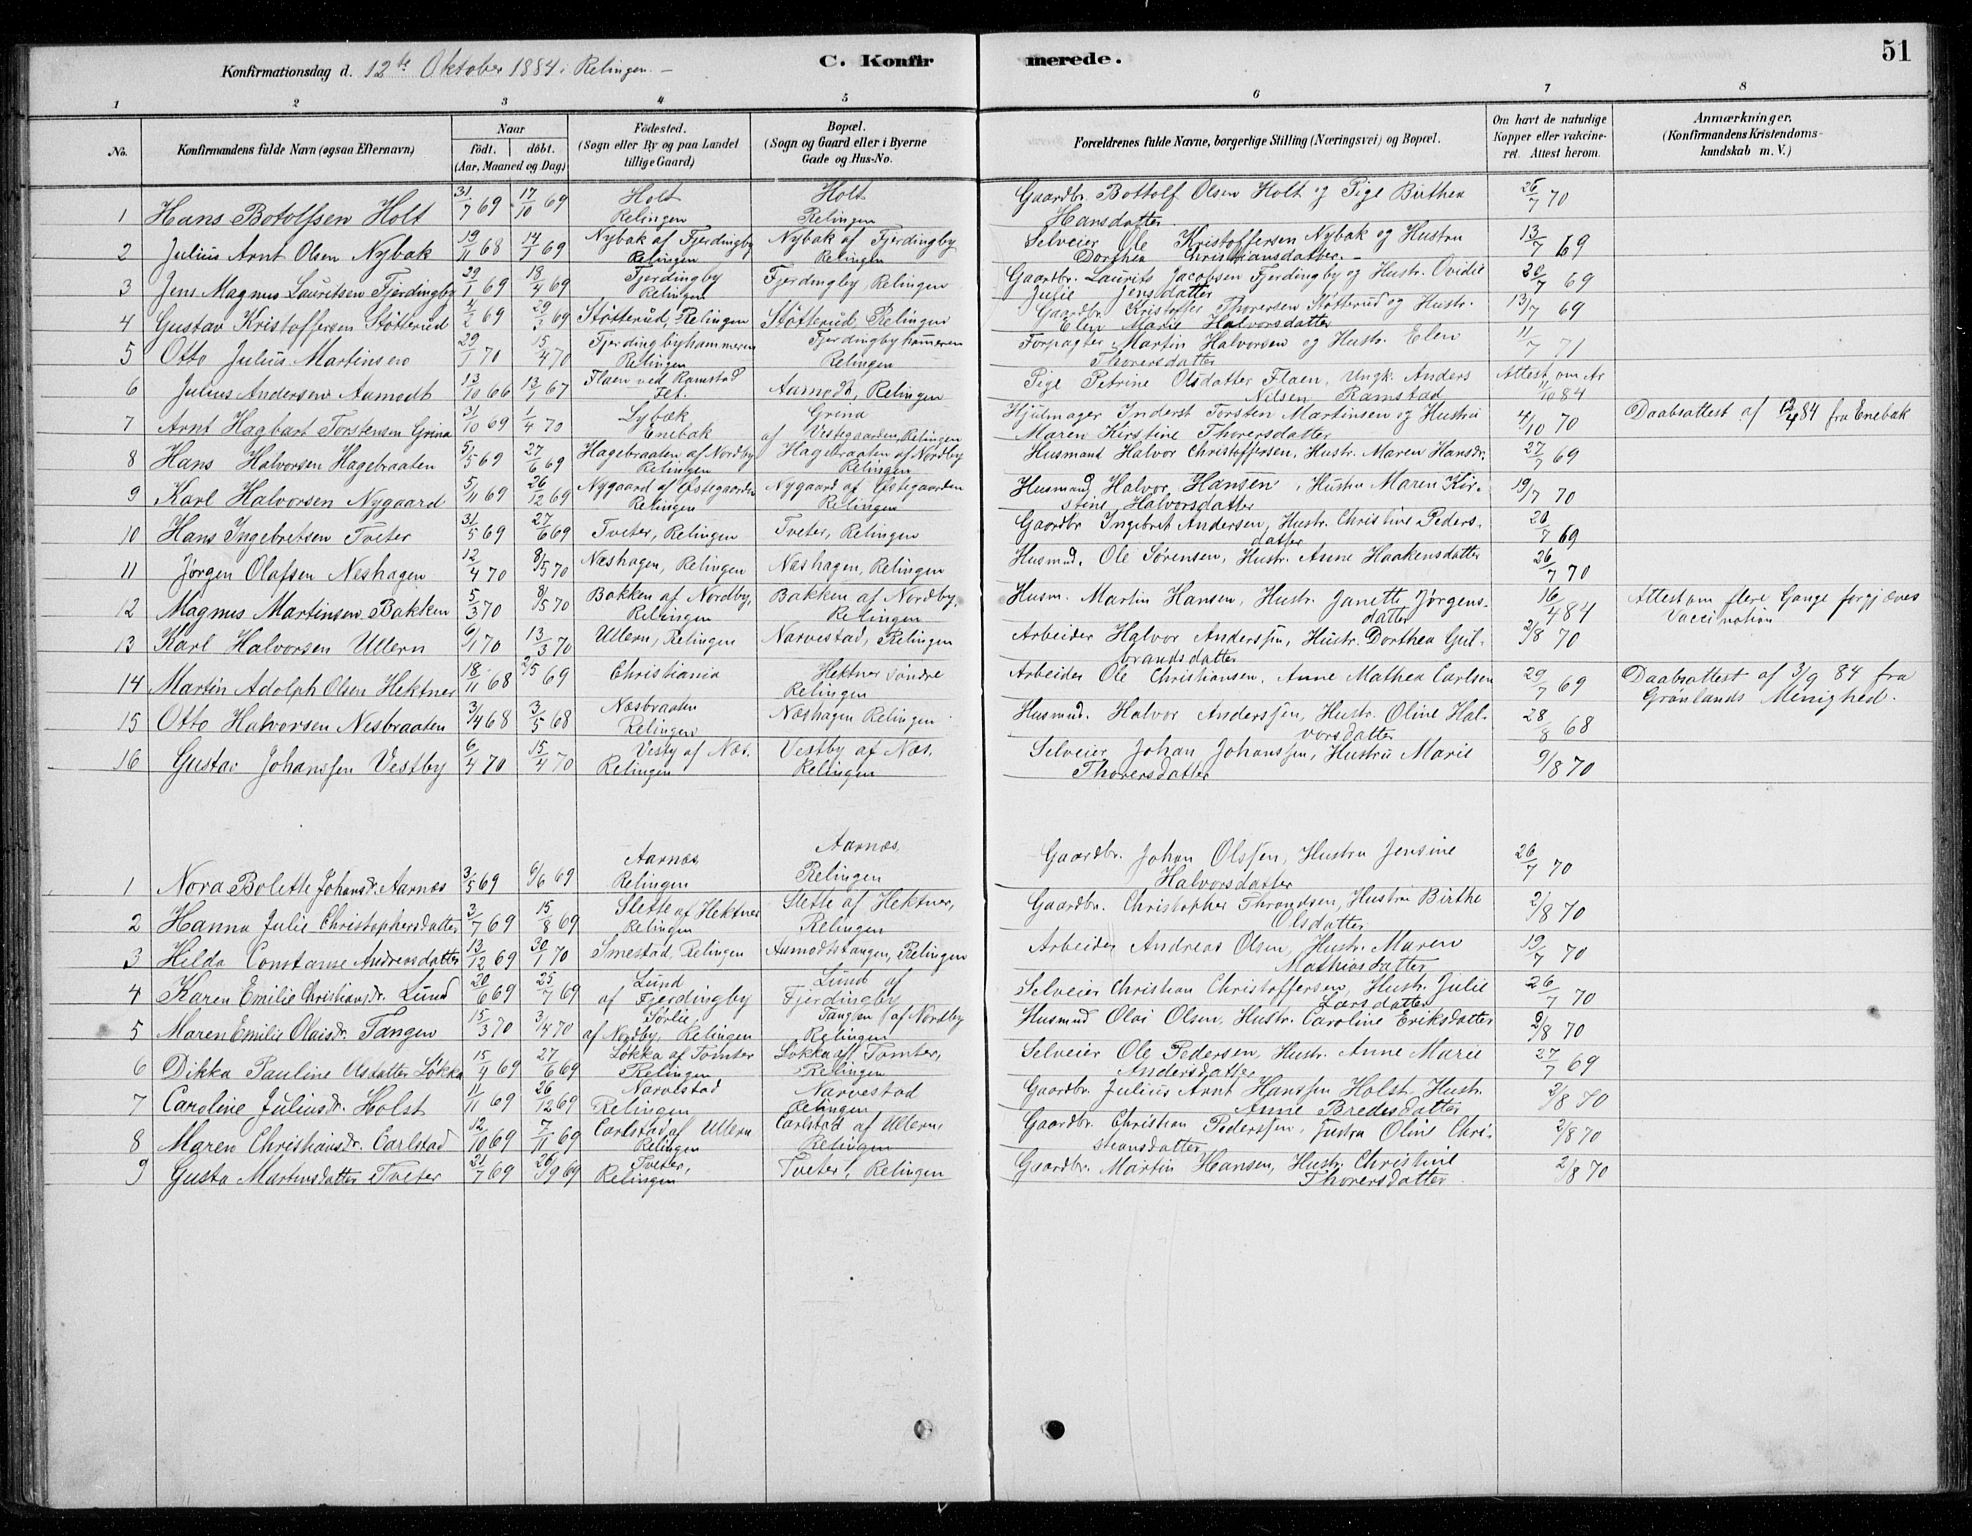 51
Konfirmationsdag d. 12te Oktober 1884 i Relingen. —
C. Konfirmerede.
1 2 3 4 5 6 7 8
No.
Konfirmandens fulde Navn (ogsaa Efternavn)
Naar født. døbt. (Aar, Maaned og Dag)
Fødested. (Sogn eller By og paa Landet tillige Gaard)
Bopæl. (Sogn og Gaard eller i Byerne Gade og Hus-No.
Forældrenes fulde Navne, borgerlige Stilling (Næringsvei) og Bopæl.
Om havt de naturlige Kopper eller vakcineret. Attest herom.
Anmærkninger. (Konfirmandens Kristendomskundskab m. V.)
1 Hans Botolfsen Holt 31/7 69 17/10 69 Holt Relingen Holt Relingen Gaardbr. Bottolf Olsen Holt og Pige Birthea Hansdatter 26/7 70
2 Julius Arnt Olsen Nybak 19/11 68 14/1 69 Nybak af Fjerdingby Relingen Nybak af Fjerdingby Relingen Selveier Ole Kristoffersen Nybak og Hustru Dorthea Christiansdatter. — 13/7 69
3 Jens Magnus Lauritsen Fjerdingby 29/1 69 18/4 69 Fjerdingby Relingen Fjerdingby Relingen Gaardbr. Laurits Jacobsen Fjerdingby og Hustr. Ovidie Julie Jensdatter 20/7 69
4 Gustav Kristoffersen Støtterud 4/2 69 29/3 69 Støtterud, Relingen Støtterud Relingen Gaardbr. Kristoffer Thorersen Støtterud og Hustr. Elen Marie Halvorsdatter 13/7 69
5 Otto Julius Martinsen 29/1 70 15/4 70 Fjerdingbyhammeren Relingen Fjerdingbyham̄eren Relingen Forpagter Martin Halvorsen og Hustr. Elen Thorersdatter 11/7 71
6 Julius Andersen Aamodt 13/10 66 13/1 67 Flaen ved Ramstad Fet. Aamodt, Relingen Pige Petrine Olsdatter Flaen, Ungk. Anders Nilsen Ramstad Attest om Ar 11/10 84
7 Arnt Hagbart Torstensen Grina 31/10 69 1/4 70 Lybæk Enebak Grina af Vestegaarden, Relingen Hjulmager Inderst Torsten Martinsen og Hustru Maren Kirstine Thorersdatter 4/10 70 Daabsattest af 12/4 84 fra Enebak
8 Hans Halvorsen Hagebraaten 5/5 69 27/6 69 Hagebraaten af Nordby Relingen Hagebraaten af Nordby Relingen Husmand Halvor Christoffersen, Hustr. Maren Hansdr. 27/7 69
9 Karl Halvorsen Nygaard 5/11 69 26/12 69 Nygaard af Østegaarden Relingen Nygaard af Østegaarden Relingen Husmand Halvor Hansen, Hustru Maren Kirstine Halvorsdatter 19/7 70
10 Hans Ingebretsen Tveter 31/5 69 27/6 69 Tveter, Relingen Tveter, Relingen Gaardbr Ingebret Andersen, Hustr. Christine Pedersdatter 20/7 69
11 Jørgen Olafsen Neshagen 12/4 70 8/5 70 Næshagen, Relingen Næshagen, Relingen Husmd. Ole Sørensen, Hustr. Anne Haakensdatter 26/7 70
12 Magnus Martinsen Bakken 5/3 70 8/5 70 Bakken af Nordby, Relingen Bakken af Nordby, Relingen Husm. Martin Hansen, Hustr. Janette Jørgensdatter 16/4 84 Attest om flere Gange forgjæves Vaccination
13 Karl Halvorsen Ullern 6/1 70 13/3 70 Ullern, Relingen Narvestad, Relingen Arbeider Halvor Anderssen, Hustr. Dorthea Gulbrandsdatter 2/8 70
14 Martin Adolph Olsen Hektner 18/11 68 2/5 69 Christiania Hektner Søndre Relingen Arbeider Ole Christiansen, Anne Mathea Carlsen 29/7 69 Daabsattest af 3/9 84 fra Grønlands Menighed.
15 Otto Halvorsen Nesbraaten 3/4 68 3/5 68 Næsbraaten Relingen Næshagen Relingen Husmd. Halvor Anderssen, Hustr. Oline Halvorsdatter 28/8 68
16 Gustav Johanssen Vestby 6/4 70 15/4 70 Vesby af Næs. Relingen Vestby af Næs. Relingen Selveier Johan Johanssen, Hustru Marie Thorersdatter 9/8 70
1 Nora Bolette Johansdr. Aarnæs 3/5 69 6/6 69 Aarnæs Relingen Aarnæs Relingen Gaardbr. Johan Olssen, Hustru Jensine Halvorsdatter 26/7 70
2 Hanna Julie Christophersdatter 3/7 69 15/8 69 Slette af Hektner Relingen Slette af Hektner, Relingen Gaardbr. Christopher Throndsen, Hustru Birthe Olsdatter 2/8 70
3 Hilda Constanse Andreasdatter 13/12 69 30/1 70 Smestad, Relingen Aamodtstangen, Relingen Arbeider Andreas Olsen, Hustr. Maren Mathiasdatter 19/7 70
4 Karen Emilie Christiansdr. Lund 20/6 69 25/7 69 Lund af Fjerdingby Lund af Fjerdingby Selveier Christian Christoffersen, Hustr. Julie Larsdatter 26/7 70
5 Maren Emilie Olaisdr. Tangen 15/3 70 3/4 70 Sørlie, af Nordby, Relingen Tangen af Nordby Relingen Husmnd Olai Olsen, Hustr. Caroline Eriksdatter 9/8 70
6 Dikka Pauline Olsdatter Løkka 15/4 69 27/6 69 Løkka af Tomter Relingen Løkka af Tomter, Relingen Selveier Ole Pedersen, Hustr. Anne Marie Andersdatter 27/7 69
7 Caroline Juliusdr. Holst 11/11 69 26/12 69 Narvestad Relingen Narvestad Relingen Gaardbr. Julius Arnt Hanssen Holst, Hustr. Anne Bredesdatter 2/8 70
8 Maren Christiansdr. Carlstad 12/10 69 7/11 69 Carlstad af Ullern Relingen Carlstad af Ullern, Relingen Gaardbr. Christian Pederssen, Hustru Oline Christiansdatter 2/8 70
9 Gusta Martinsdatter Tveter 21/7 69 26/9 69 Tveter, Relingen Tveter, Relingen Gaardbr. Martin Hansen, Hustr. Christine Thorersdatter 2/8 70